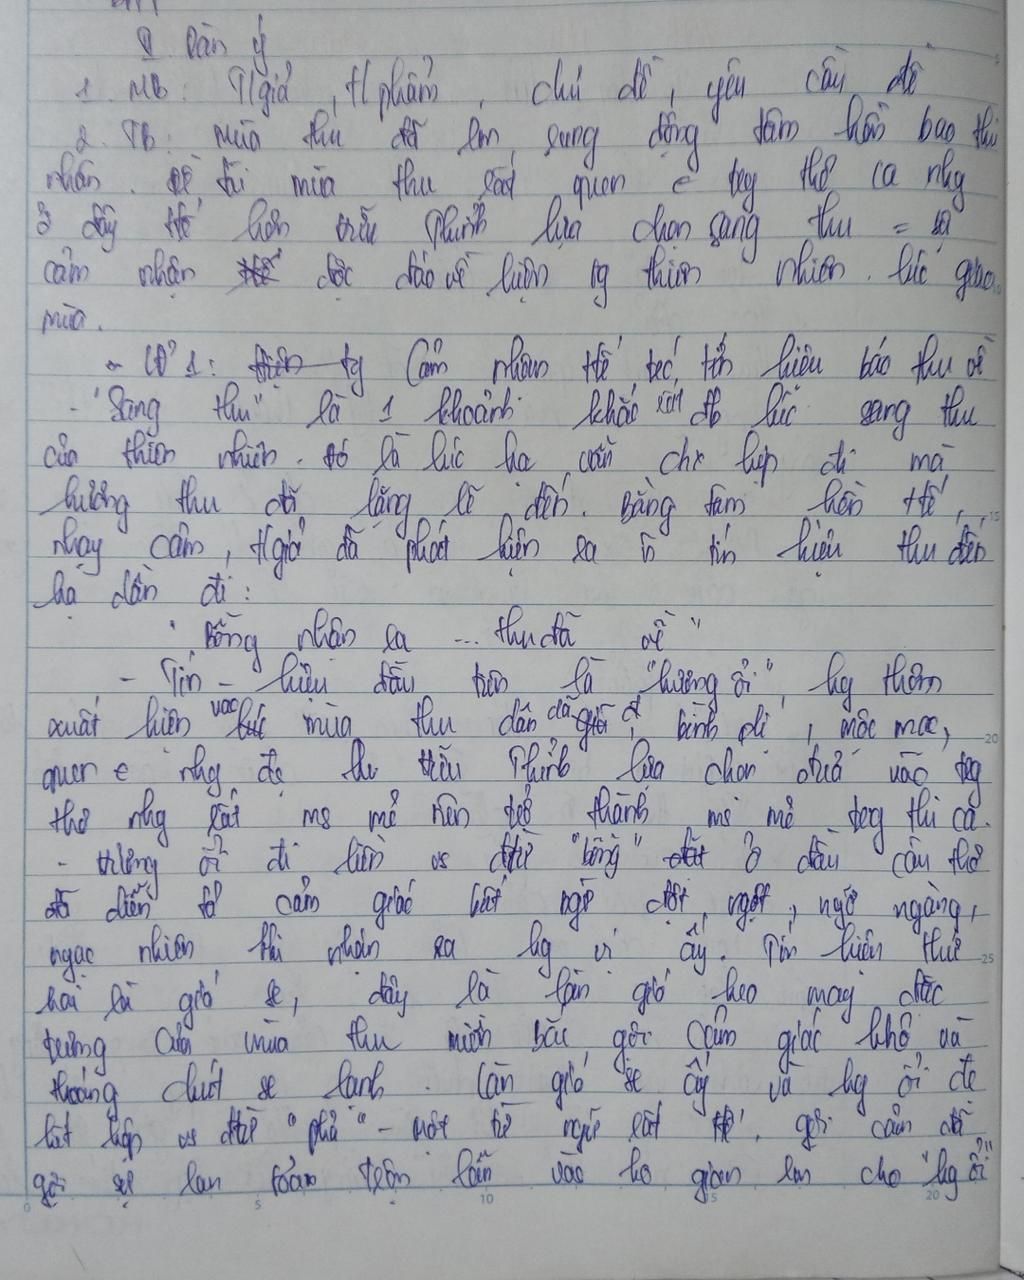 II Dàn ý
1. MB: T/giả, t/phẩm, chủ đề, yêu cầu đề
2. TB: Mùa thu đã làm rung động tâm hồn bao thi
nhân. Đề tài mùa thu rất quen e trg thơ ca nhg
ở đây Hữu Thỉnh lựa chọn sang thu =
cảm nhận độc đáo về thiên nhiên lúc giao
mùa.
1: Cảm nhận tế tín hiệu báo thu về
- "Sang thu" là 1 khoảnh khắc đó lúc sang thu
của thiên nhiên. Đó là lúc hạ vẫn chx kịp đi mà
hương thu đã lặng lẽ đến. Bằng tâm hồn tế,
nhạy cảm, t/giả đã phát hiện ra tín hiệu thu đến
hạ dần đi:
"Bỗng nhận ra ... thu đã về"
- Tín - hiệu đầu tiên là "hương ổi", hg thơm
xuất hiện vào mùa thu dân dã, bình dị, mộc mạc,
quen e nhg đc Thỉnh lựa chọn đưa vào trg
thơ nhg rất ms mẻ nên trở thành ms mẻ trg thi ca.
- Hương ổi đi liền vs đtừ "bỗng" ở đầu câu thơ
đã diễn tả cảm giác bất ngờ đột ngột, ngỡ ngàng,
ngạc nhiên khi nhận ra hg vị ấy. Tín hiệu thứ
hai là gió se, đây là làn gió heo may đặc
trưng của mùa thu miền bắc gợi cảm giác khô và
thoáng chút se lạnh. Làn gió se ấy và hg ổi đc
kết hợp vs đtừ "phả" - một từ ngữ rất gợi cảm đã
gợi sự lan tỏa trộn lẫn vào ko gian làm cho "hg ổi"